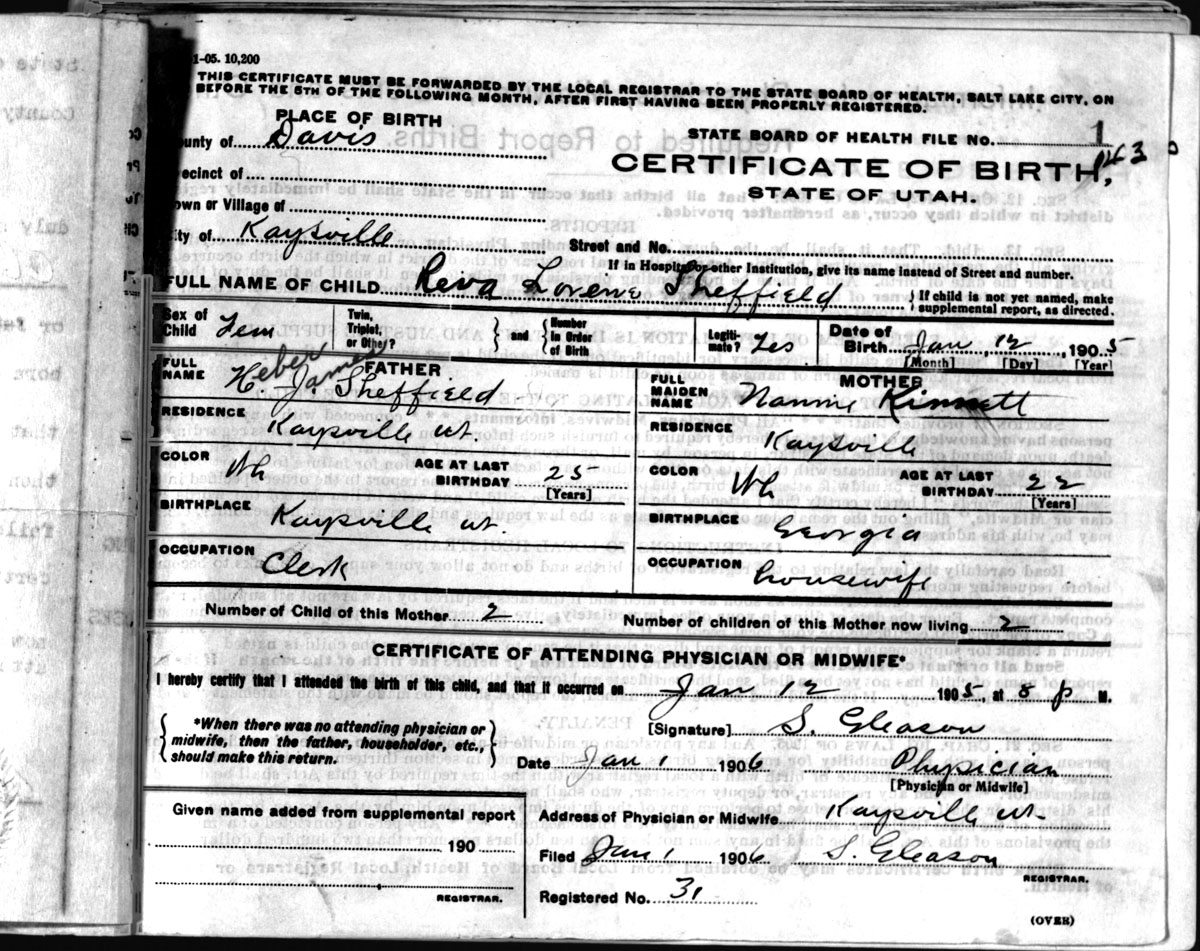 1-05. 10,200
THIS CERTIFICATE MUST BE FORWARDED BY THE LOCAL REGISTRAR TO THE STATE BOARD OF HEALTH, SALT LAKE CITY, ON
BEFORE THE 5TH OF THE FOLLOWING MONTH, AFTER FIRST HAVING BEEN PROPERLY REGISTERED.
PLACE OF BIRTH
STATE BOARD OF HEALTH FILE NO. 1
ounty of Davis
CERTIFICATE OF BIRTH,
recinct of
STATE OF UTAH.
own or Village of
ity of Kaysville Street and No.
If in Hospital or other Institution, give its name instead of Street and number.
FULL NAME OF CHILD Reva Lorene Sheffield { If child is not yet named, make supplemental report, as directed.
Sex of Child Fem Twin, Triplet, or Other? } and { Number in Order of Birth Legiti- mate? Yes Date of Birth Jan, 12, 1905
[Month] [Day] [Year]
FATHER
FULL NAME Heber James
H. J. Sheffield
MOTHER
FULL MAIDEN NAME Nannie Kinnett
RESIDENCE Kaysville Ut.
RESIDENCE Kaysville
COLOR Wh AGE AT LAST BIRTHDAY 25 [Years]
COLOR Wh AGE AT LAST BIRTHDAY 22 [Years]
BIRTHPLACE Kaysville Ut.
BIRTHPLACE Georgia
OCCUPATION Clerk
OCCUPATION housewife
Number of Child of this Mother 2 Number of children of this Mother now living 2
CERTIFICATE OF ATTENDING PHYSICIAN OR MIDWIFE*
I hereby certify that I attended the birth of this child, and that it occurred on Jan 12 1905, at 8 p M.
{ *When there was no attending physician or midwife, then the father, householder, etc., should make this return. }
[Signature] S. Gleason
Date Jan 1 1906 Physician
[Physician or Midwife]
Given name added from supplemental report
190
REGISTRAR.
Address of Physician or Midwife Kaysville Ut.
Filed Jan 1 1906 S. Gleason
REGISTRAR.
Registered No. 31
(OVER)